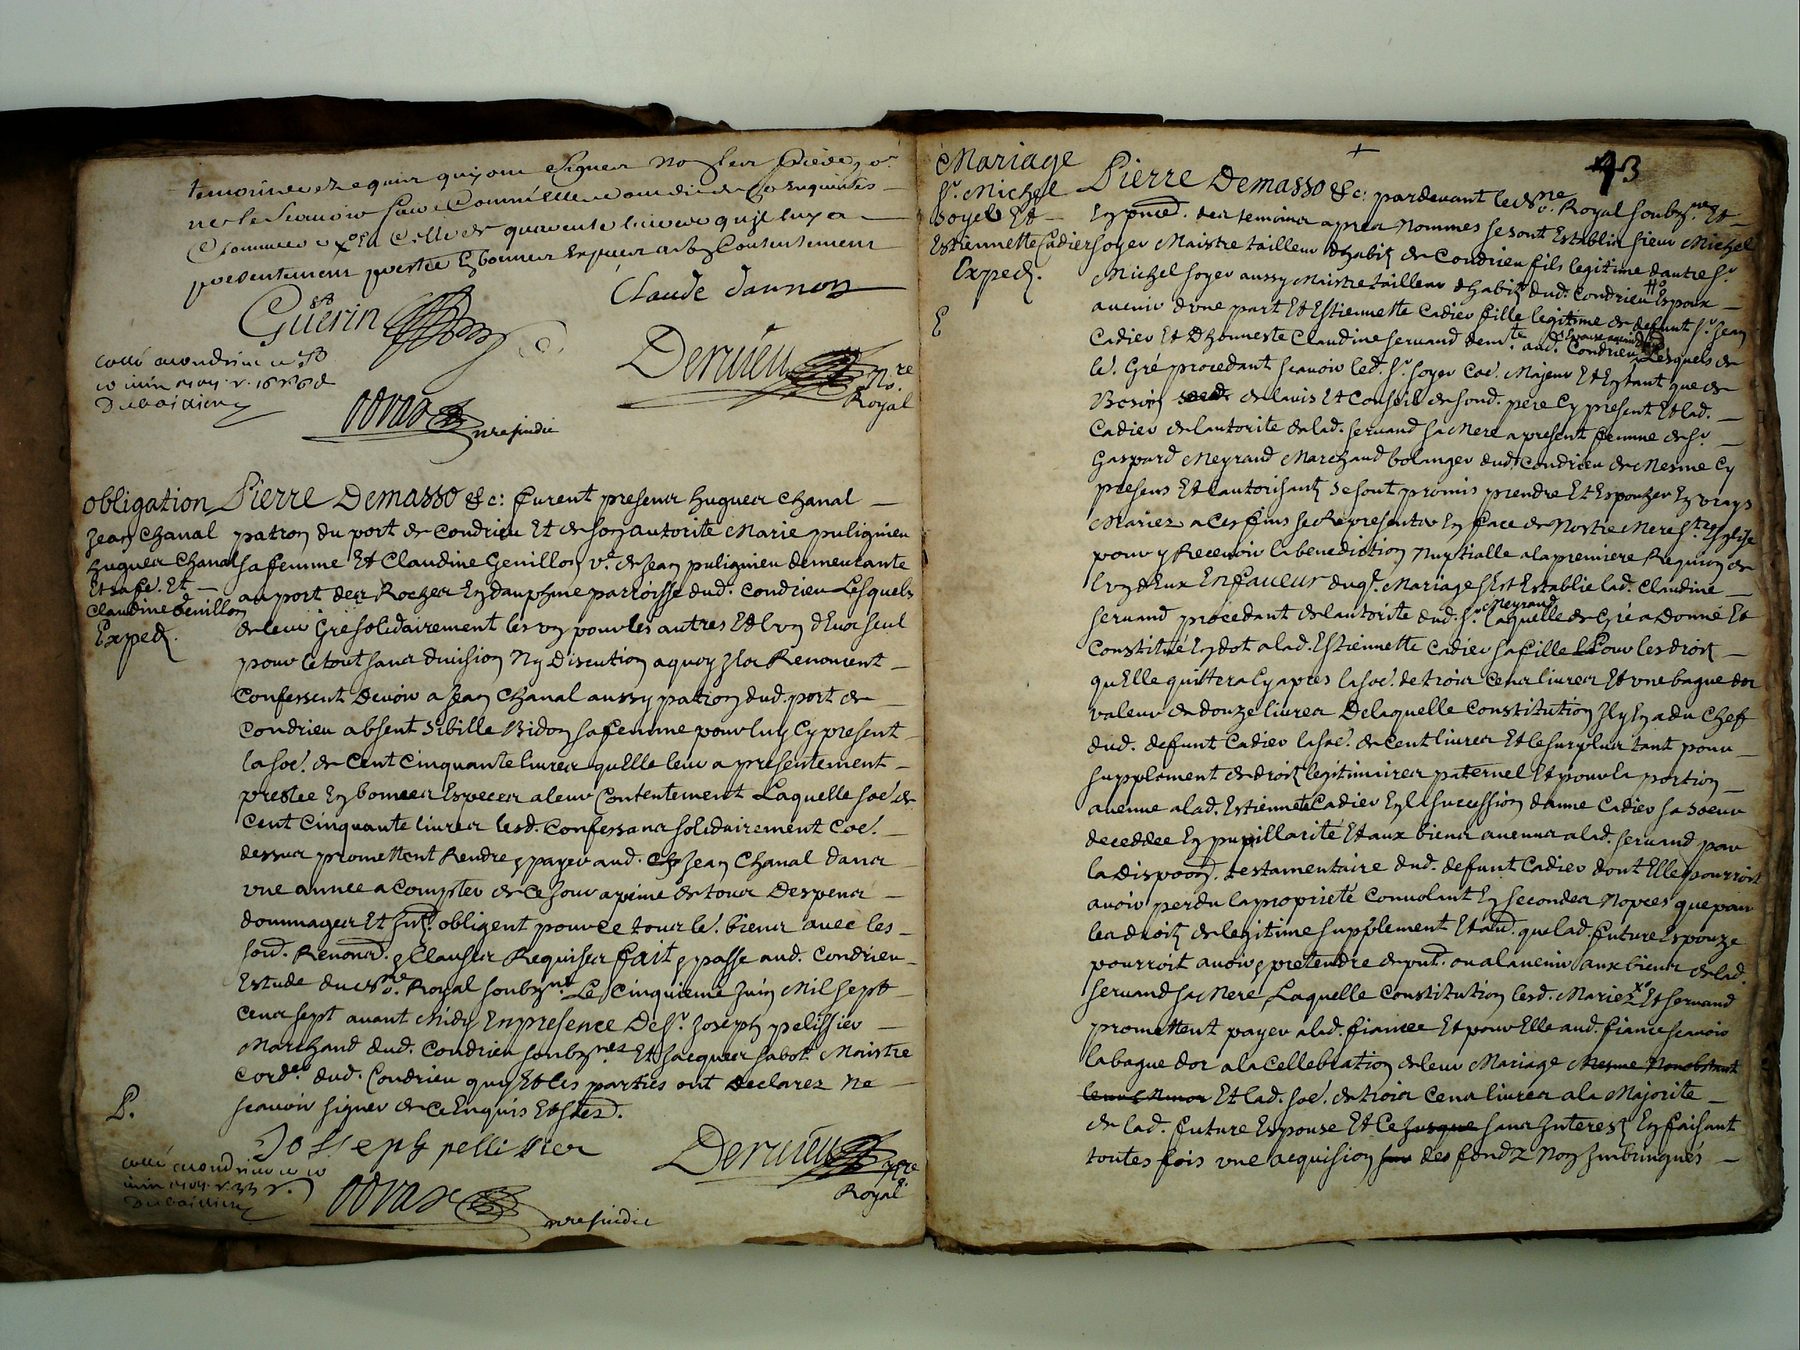 temoins requis qui ont signer non leur
ne scavoir faire comme elle a
Et celle de quarante livres qu'il luy a
presentement prestée En bonnes Especes a son Contentement
Guerin
Claude Jannon
Deruieu No.re
Royal
sindic
obligation
Jean Chanal
hugues Chanal
Et sa fe. Et
Claudine Genillon
Exped.
Pierre Demasso &c: furent presens hugues Chanal
patron du port de Condrieu Et de son autorite Marie pulignieu
sa femme Et Claudine Genillon v.e de Jean pulignieu demeurante
au port des Roches En dauphine parroisse dud. Condrieu Lesquels
de leur Gré solidairement les vn pour les autres Et l'vn d'Eux seul
pour le tout sans division Ny Discution a quoy Ils Renoncent
Confessent Devoir a Jean Chanal aussy patron dud. port de
Condrieu absent Sibille Bidon sa femme pour luy Cy present
la soe. de Cent Cinquante livres qu'Elle leur a presentement
prestée En bonnes Especes a leur Contentement Laquelle soe. de
Cent Cinquante livres lesd. Confessans solidairement Coe.
dessus promettent Rendre & payer aud. Jean Chanal dans
vne année a Compter de Ce Jour a peine de tous Despens
dommages Et obligent pour Ce tous le. biens avec les
soud. Renond. & Clauses Requises fait & passe aud. Condrieu
Estude du No.re Royal soubz.ne Le Cinquieme Juin Mil sept
Cens sept avant Midy En presence De s.r Joseph pelissier
Marchand dud. Condrieu soubz.nez Et Jacques sabot Maistre
Cord.er dud. Condrieu qui Et les parties ont Declarez Ne
scavoir signer de Ce Enquis Et
P.
Josseph pellissier
Deruieu No.re
Royal
sindic
43
Mariage
S.r Michel
soyer Et
Estiennette Cadier
Exped.
E
Pierre Demasso &c: pardevant le No.re Royal soubz.ne Et
En pnce. des temoins apres Nommes se sont Establis sieur Michel
soyer Maistre tailleur dhabitz de Condrieu fils legitime d'autre s.r
Michel soyer aussy Maistre tailleur dhabitz dud. Condrieu Espoux
avenir d'vne part Et Estiennette Cadier fille legitime de defunt s.r Jean
Cadier Et D'honneste Claudine servand aud. Condrieu Lesquels de
le. Gré procedant scavoir led. s.r soyer Coe. Majeur Et En tant que de
Besoin de lavis Et Conseils de sond. pere Cy present Et lad.
Cadier de lautorite de lad. servand sa Mere a present femme de s.r
Gaspard Meyrand Marchand bolanger dud. Condrieu de Mesme Cy
presens Et lautorisantz se sont promis prendre Et Espouzer En vrays
Mariez a Ces fins se Representer En face de Nostre Mere s.te Esglise
pour y Recevoir la benediction Nuptialle a la premiere Requi.on de
lvn d'Eux En faveur duql. Mariage s'Est Establie lad. Claudine
servand procedant de lautorite dud. s.r Meyrand laquelle de Gré a Donné Et
Constitué En dot a lad. Estiennette Cadier sa fille Pour les droitz
qu'Elle quittera Cy apres la soe. de trois Cens livres Et vne bague dor
valeur de douze livres De laquelle Constitution Il y En a du Chef
dud. defunt Cadier la soe. de Cent livres Et le surplus tant pour
supplement de droitz legitimaires paternel Et pour la portion
avenue a lad. Estiennette Cadier En la succession danne Cadier sa soeur
decedée En pupillarité Et aux biens avenus a lad. servand par
la dispoon. testamentaire dud. defunt Cadier dont Elle pourroit
avoir perdu la proprieté Convolant En secondes Nopces que pour
les droitz de legitime supplement Et au. que lad. future Espouze
pourroit avoir & pretendre de pnt. ou a lavenir aux biens de lad.
servand sa Mere Laquelle Constitution lesd. Mariez Et servand
promettent payer a lad. fiancée Et pour Elle aud. fiance scavoir
la bague dor a la Cellebration de leur Mariage Mesme Nonobstant
Et lad. soe. de trois Cens livres a la Majorite
de lad. future Espouse Et Ce Jusque sans Interestz En faisant
toutes fois vne acquision des fondz Non Imbringués